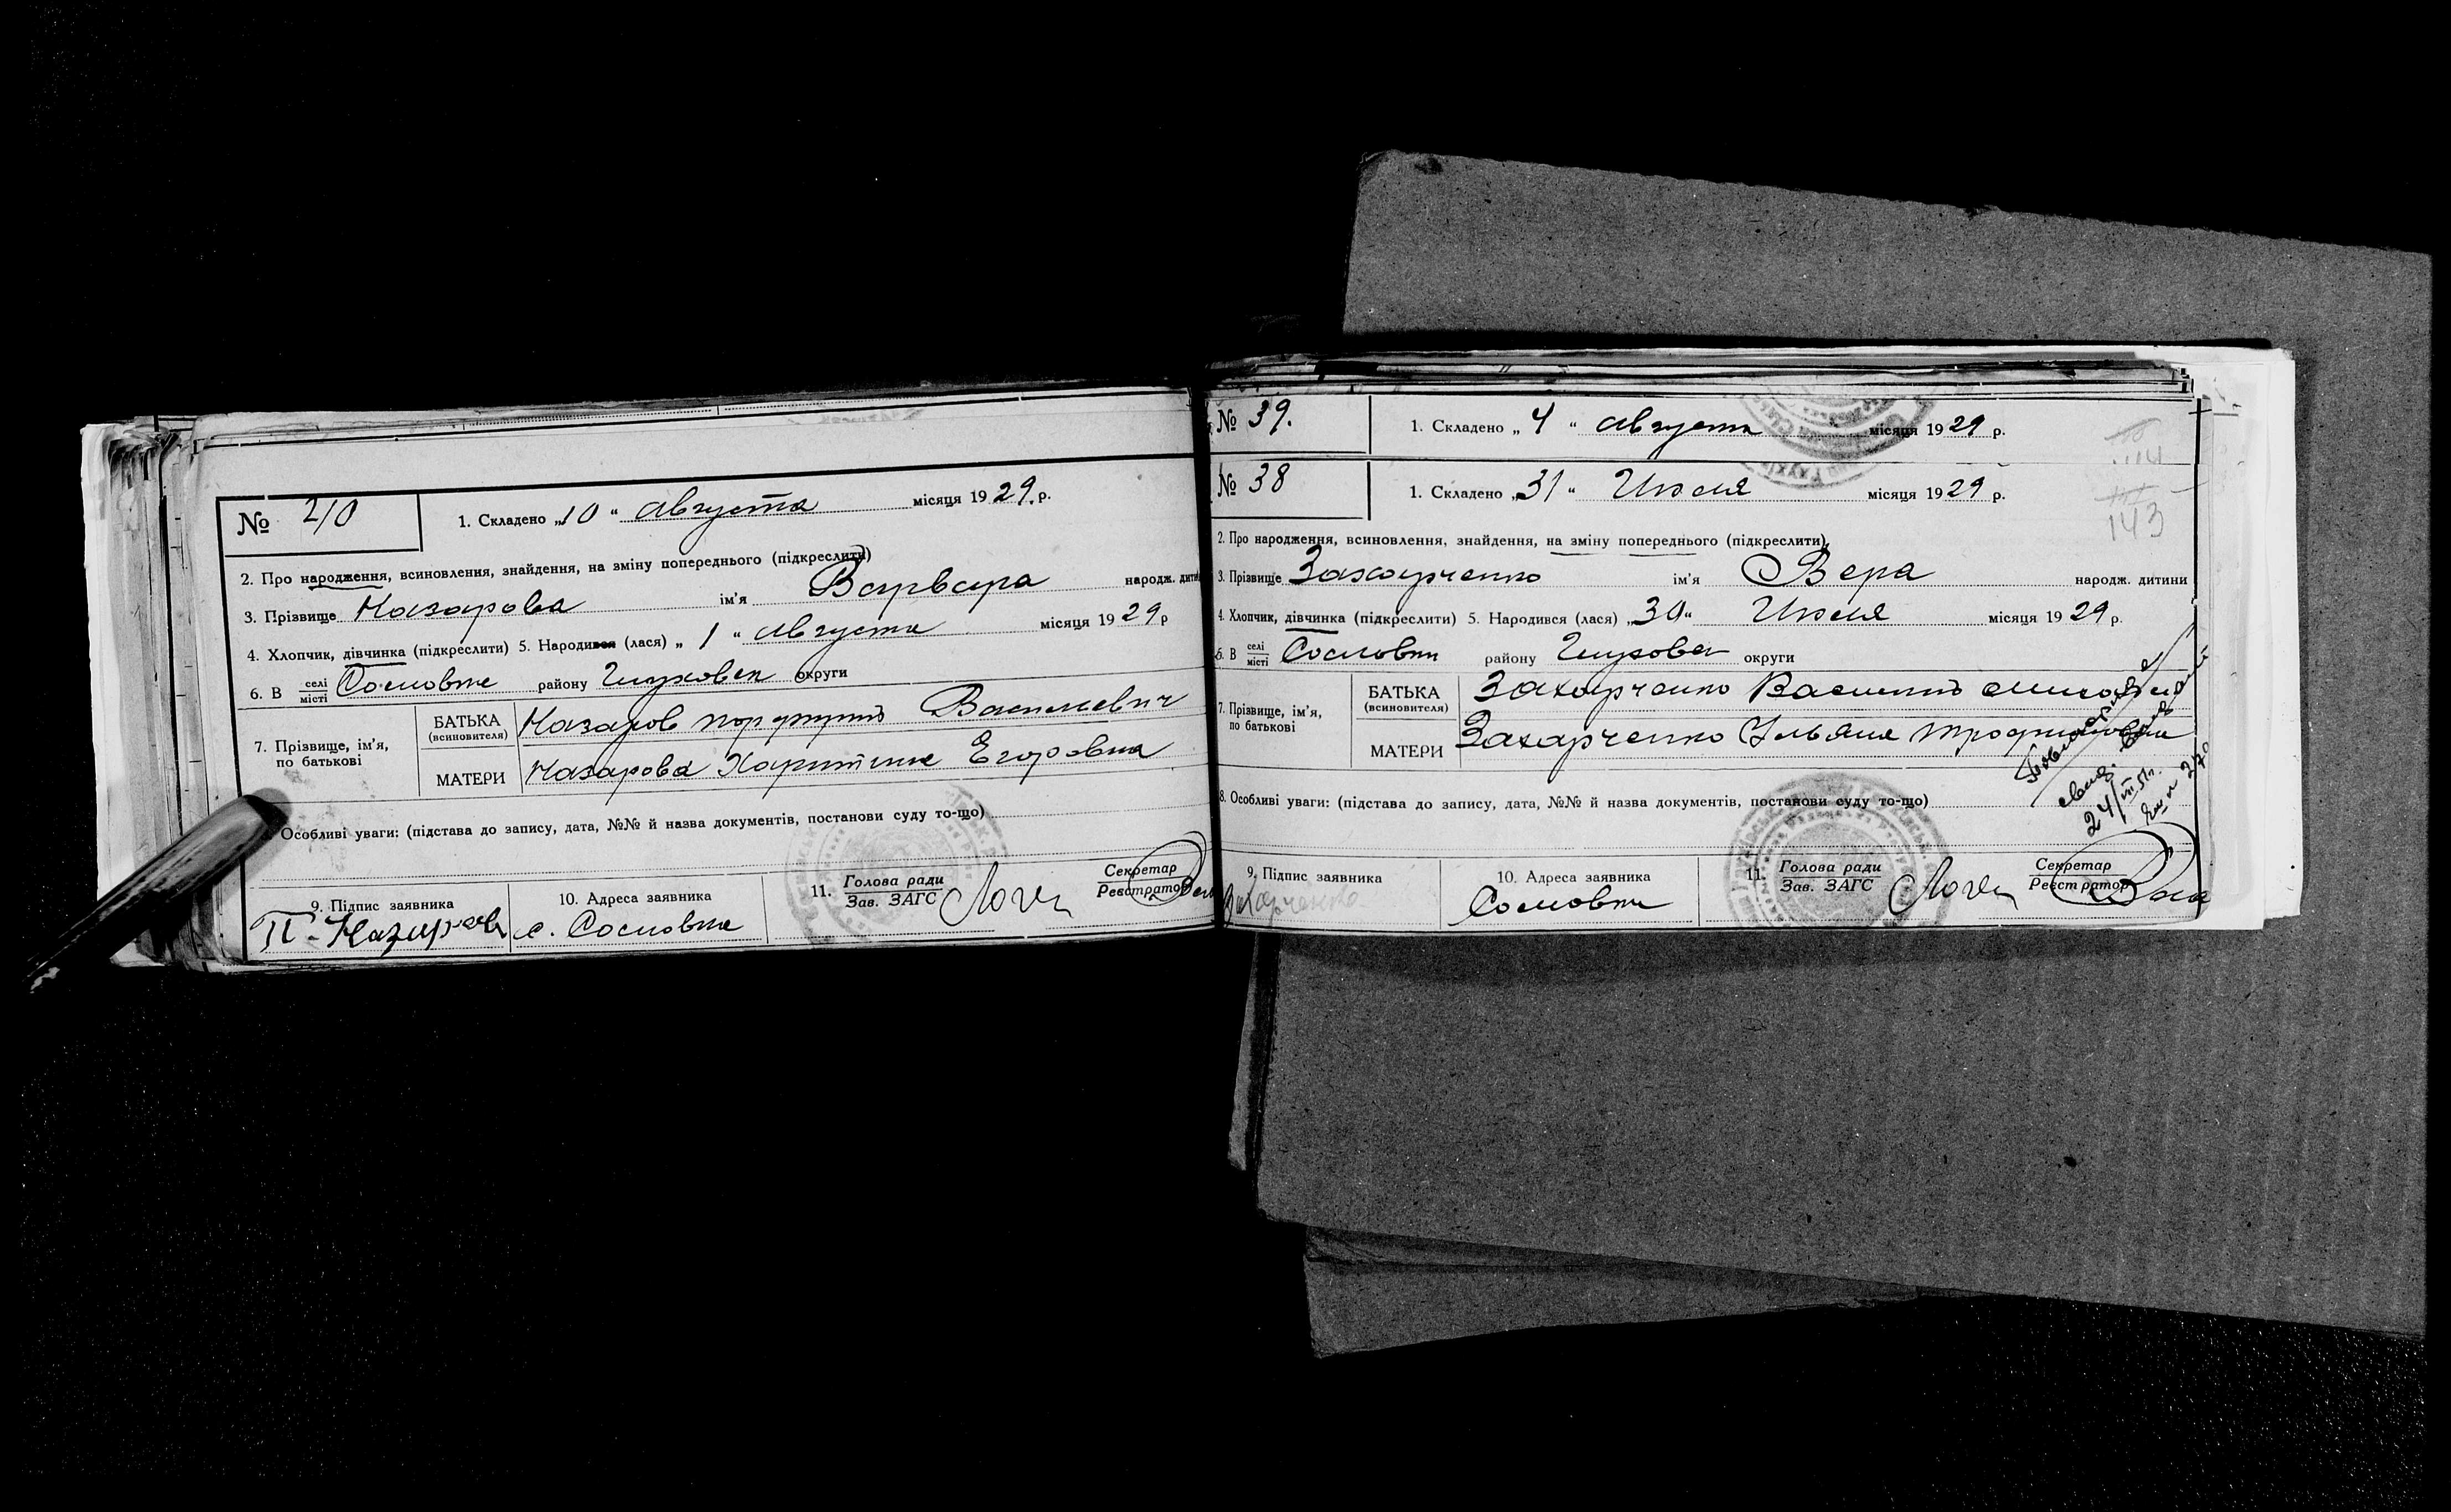 № 210
1. Складено „10“ августа місяця 1929 р.
2. Про народження, всиновлення, знайдення, на зміну попереднього (підкреслити)
3. Прізвище Назарова ім'я Варвара народж. дити
4. Хлопчик, дівчинка (підкреслити) 5. Народився (лася) „1“ августа місяця 1929 р
6. В селі місті Сосновке району Глуховск округи
7. Прізвище, ім'я, по батькові
БАТЬКА (всиновителя) Назаров Василиевич
МАТЕРИ Назарова Харитина Егоровна
Особливі уваги: (підстава до запису, дата, №№ й назва документів, постанови суду то-що)
9. Підпис заявника
П. Назаров
10. Адреса заявника
с. Сосновка
11. Голова ради
Зав. ЗАГС
Секретар
Реєстратор
№ 39.
1. Складено „4“ августа місяця 1929 р.
№ 38
1. Складено „31“ Июля місяця 1929 р.
143
2. Про народження, всиновлення, знайдення, на зміну попереднього (підкреслити)
3. Прізвище Захарченко ім'я Вера народж. дитини
4. Хлопчик, дівчинка (підкреслити) 5. Народився (лася) „30“ Июля місяця 1929 р.
6. В селі місті Сосновки району Глухов округи
7. Прізвище, ім'я, по батькові
БАТЬКА (всиновителя) Захарченко
МАТЕРИ Захарченко Ульяна Трофимовна
8. Особливі уваги: (підстава до запису, дата, №№ й назва документів, постанови суду то-що)
9. Підпис заявника
Захарченко
10. Адреса заявника
Сосновка
11. Голова ради
Зав. ЗАГС
Секретар
Реєстратор